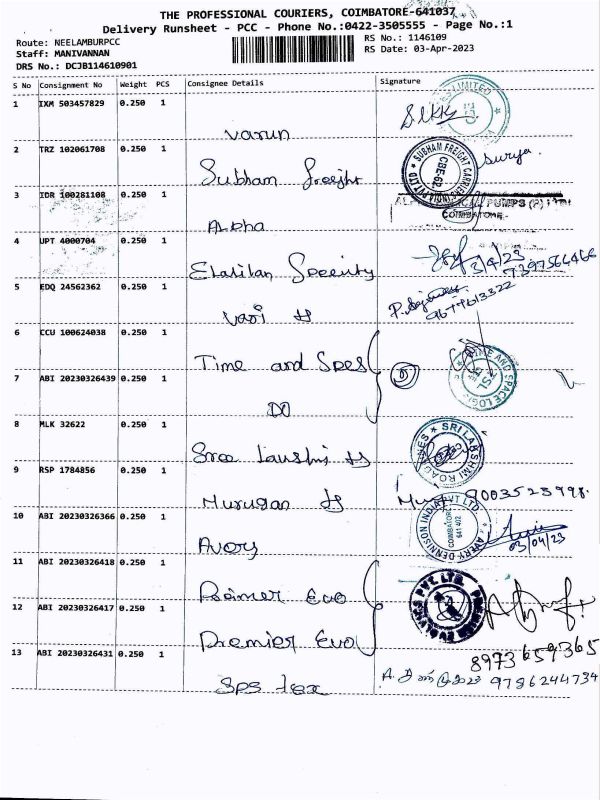 THE PROFESSIONAL COURIERS, COIMBATORE-641037
Delivery Runsheet - PCC - Phone No.:0422-3505555 - Page No.:1
Route: NEELAMBURPCC
RS No.: 1146109
Staff: MANIVANNAN
RS Date: 03-Apr-2023
DRS No.: DCJB114610901
S No Consignment No Weight PCS Consignee Details Signature
1 IXM 503457829 0.250 1
Varun
2 TRZ 102061708 0.250 1
Subham Freight
SUBHAM FREIGHT CARRIERS INDIA PVT LTD
CBE-62
Surya.
3 IDR 100281108 0.250 1
Alpha
PUMPS (P)
COIMBATORE
4 UPT 4000704 0.250 1
3/4/23
7397566466
5 EDQ 24562362 0.250 1
9677613322
6 CCU 100624038 0.250 1
Time and Spes
7 ABI 20230326439 0.250 1
DO
TIME AND SPACE
8 MLK 32622 0.250 1
SRI LAKSHMI ROADLINES
9 RSP 1784856 0.250 1
Murugan
9003523998
10 ABI 20230326366 0.250 1
Avory
AVERY DENNISON INDIA PVT LTD
COIMBATORE
641 402
03/04/23
11 ABI 20230326418 0.250 1
Evo
12 ABI 20230326417 0.250 1
Premier Evo
PREMIER EVOLVICS PVT. LTD.
8973659365
13 ABI 20230326431 0.250 1
SPS tex
9786244734